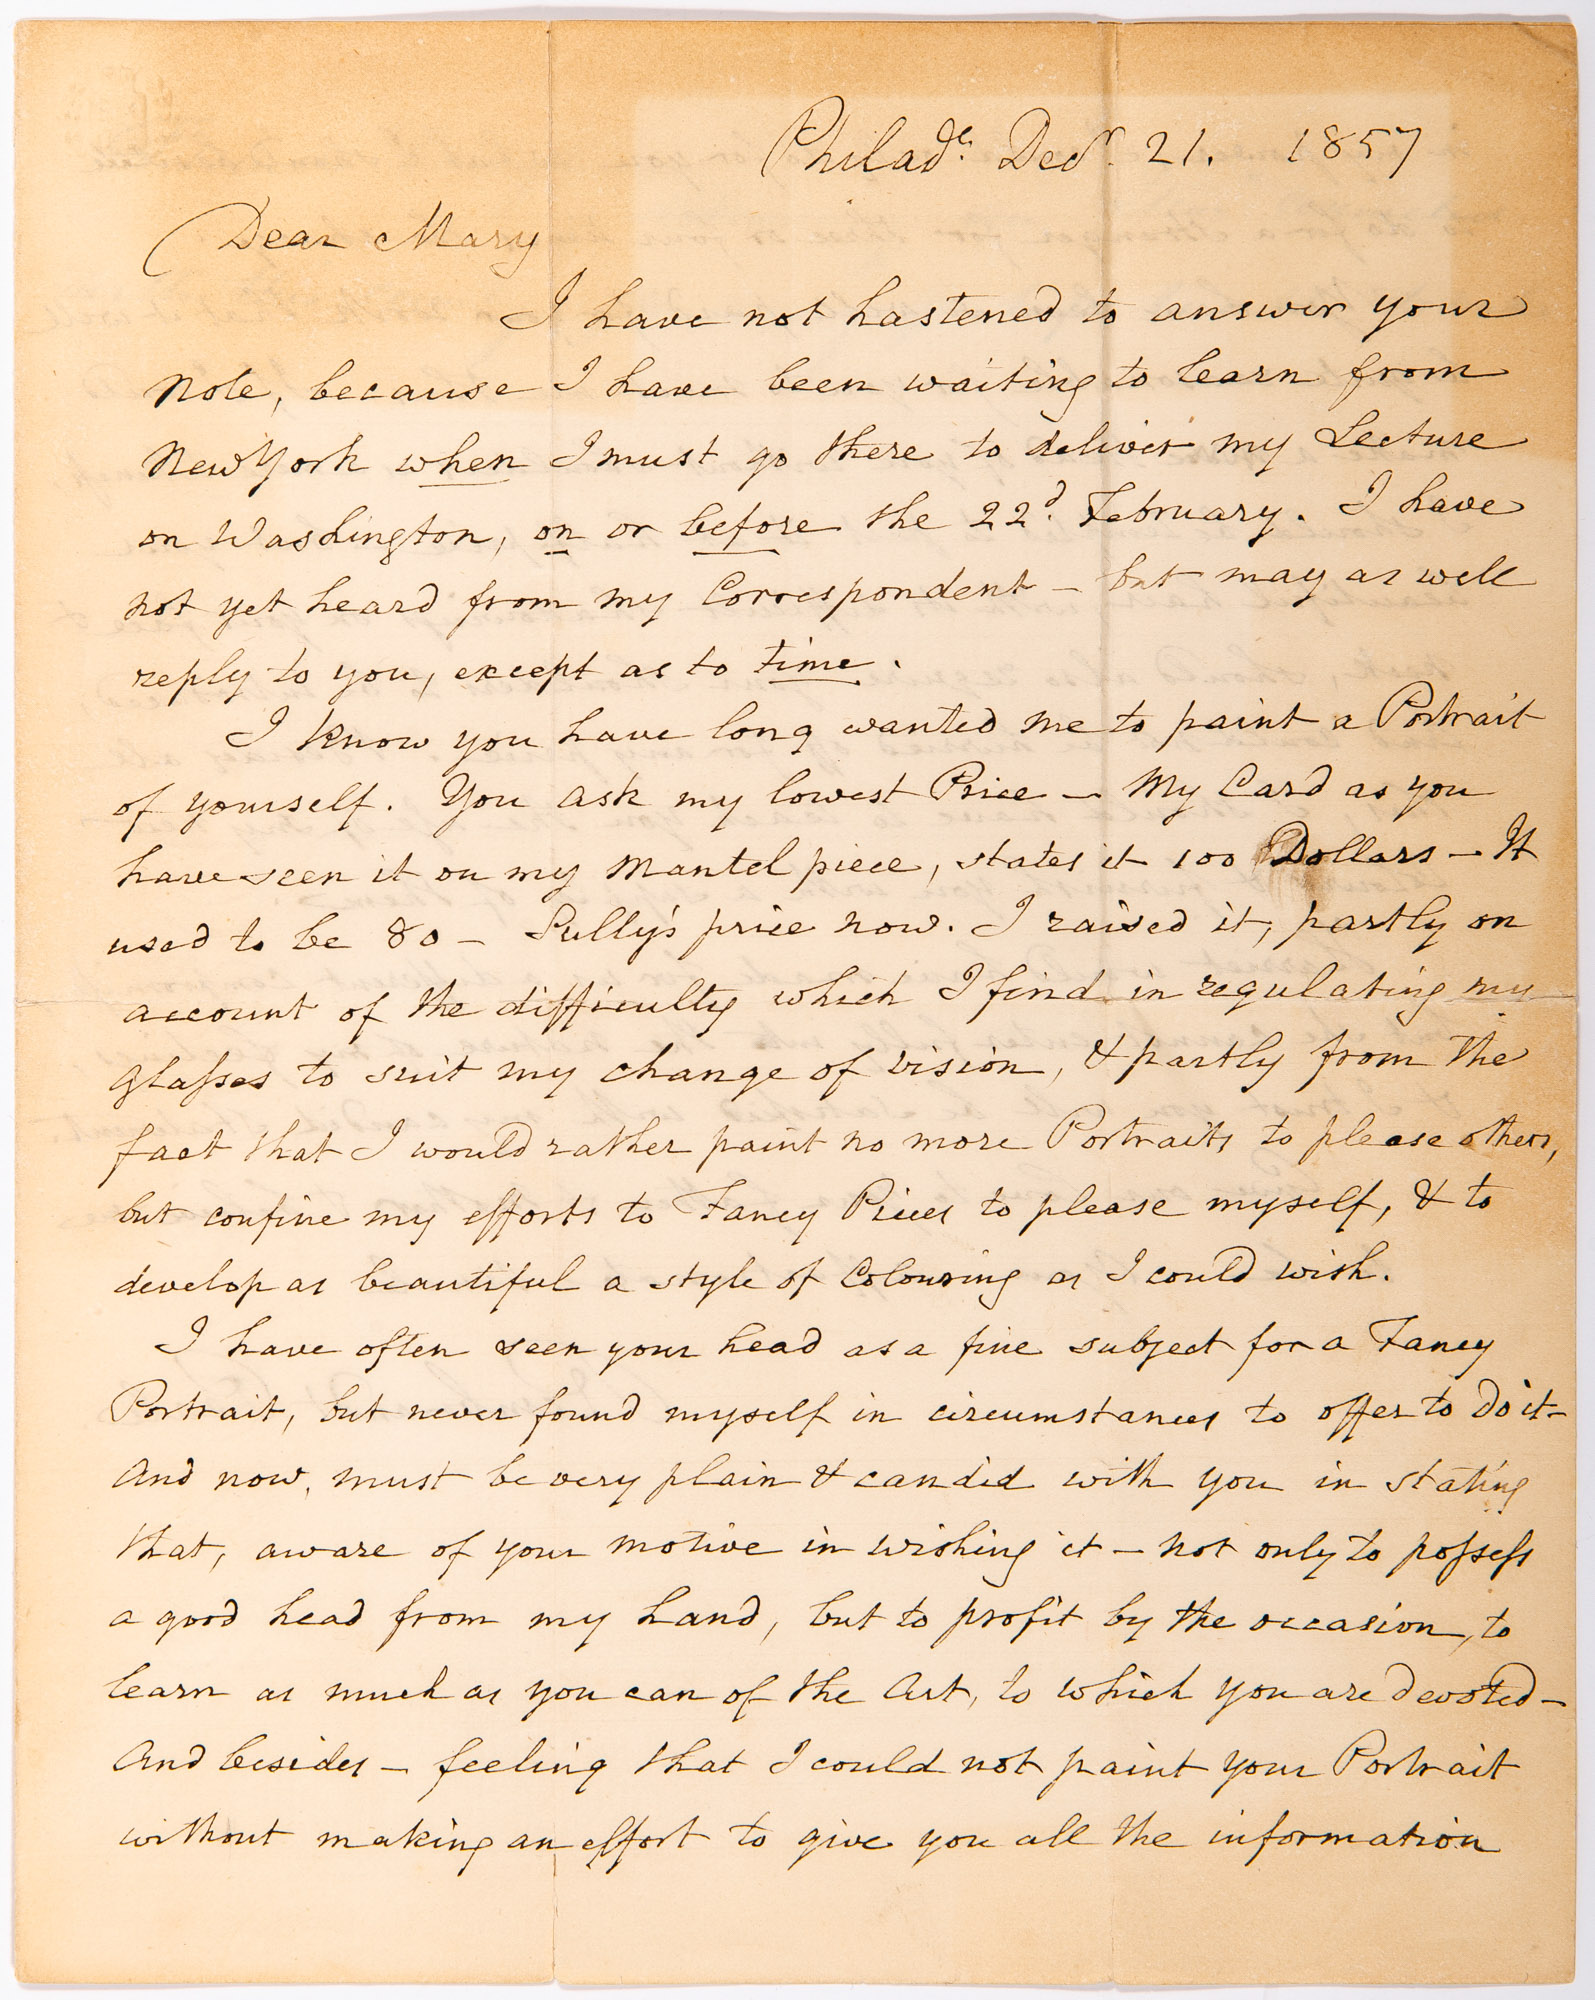 Philad.ᵉ Decʳ. 21. 1857
Dear Mary
I have not hastened to answer your
note, because I have been waiting to learn from
New York when I must go there to deliver my Lecture
on Washington, on or before the 22ᵈ. February. I have
not yet heard from my Correspondent – but may as well
reply to you, except as to time.
I know you have long wanted me to paint a Portrait
of yourself. You ask my lowest Price – My Card as you
have seen it on my Mantel piece, states it 100 Dollars – It
used to be 80 – Sully's price now. I raised it, partly on
account of the difficulty which I find in regulating my
glaſses to suit my change of vision, & partly from the
fact that I would rather paint no more Portraits to please others,
but confine my efforts to Fancy Pieces to please myself, & to
develop as beautiful a style of Colouring as I could wish.
I have often seen your head as a fine subject for a Fancy
Portrait, but never found myself in circumstances to offer to do it –
And now, must be very plain & candid with you in stating
that, aware of your motive in wishing it – not only to poſseſs
a good head from my hand, but to profit by the occasion, to
learn as much as you can of the Art, to which you are devoted –
And besides – feeling that I could not paint your Portrait
without making an effort to give you all the information